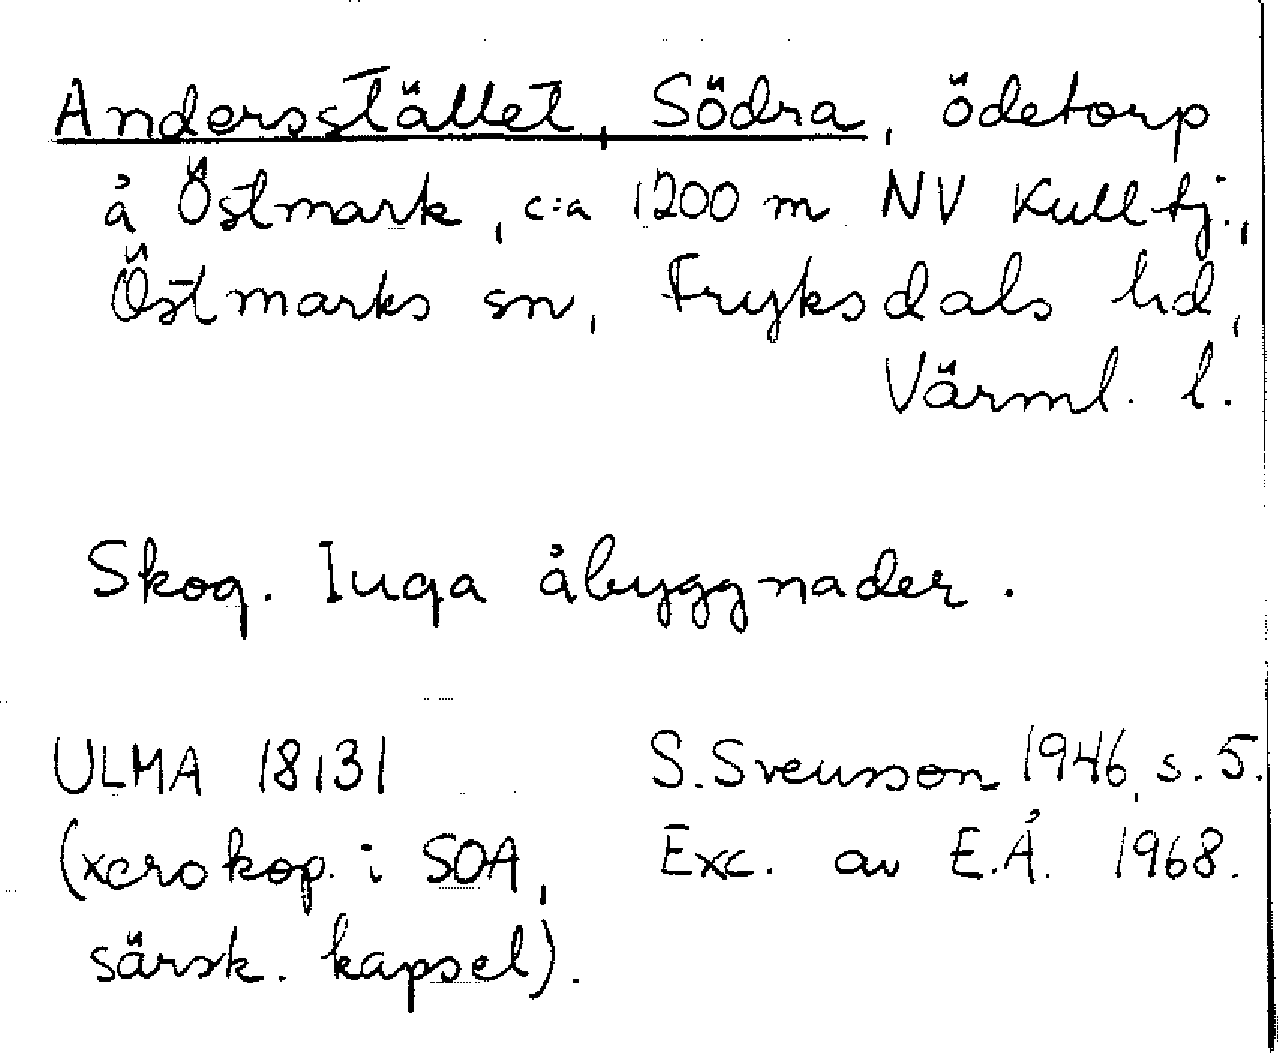 Andersstället, Södra, ödetorp
å Östmark, c:a 1200 m NV Kulltj.,
Östmarks sn, Fryksdals hd,
Värml. l.
Skog. Inga åbyggnader.
ULMA 18131 S. Svensson 1946, s. 5.
(xerokop. i SOA, Exc. av E.Å. 1968.
särsk. kapsel).